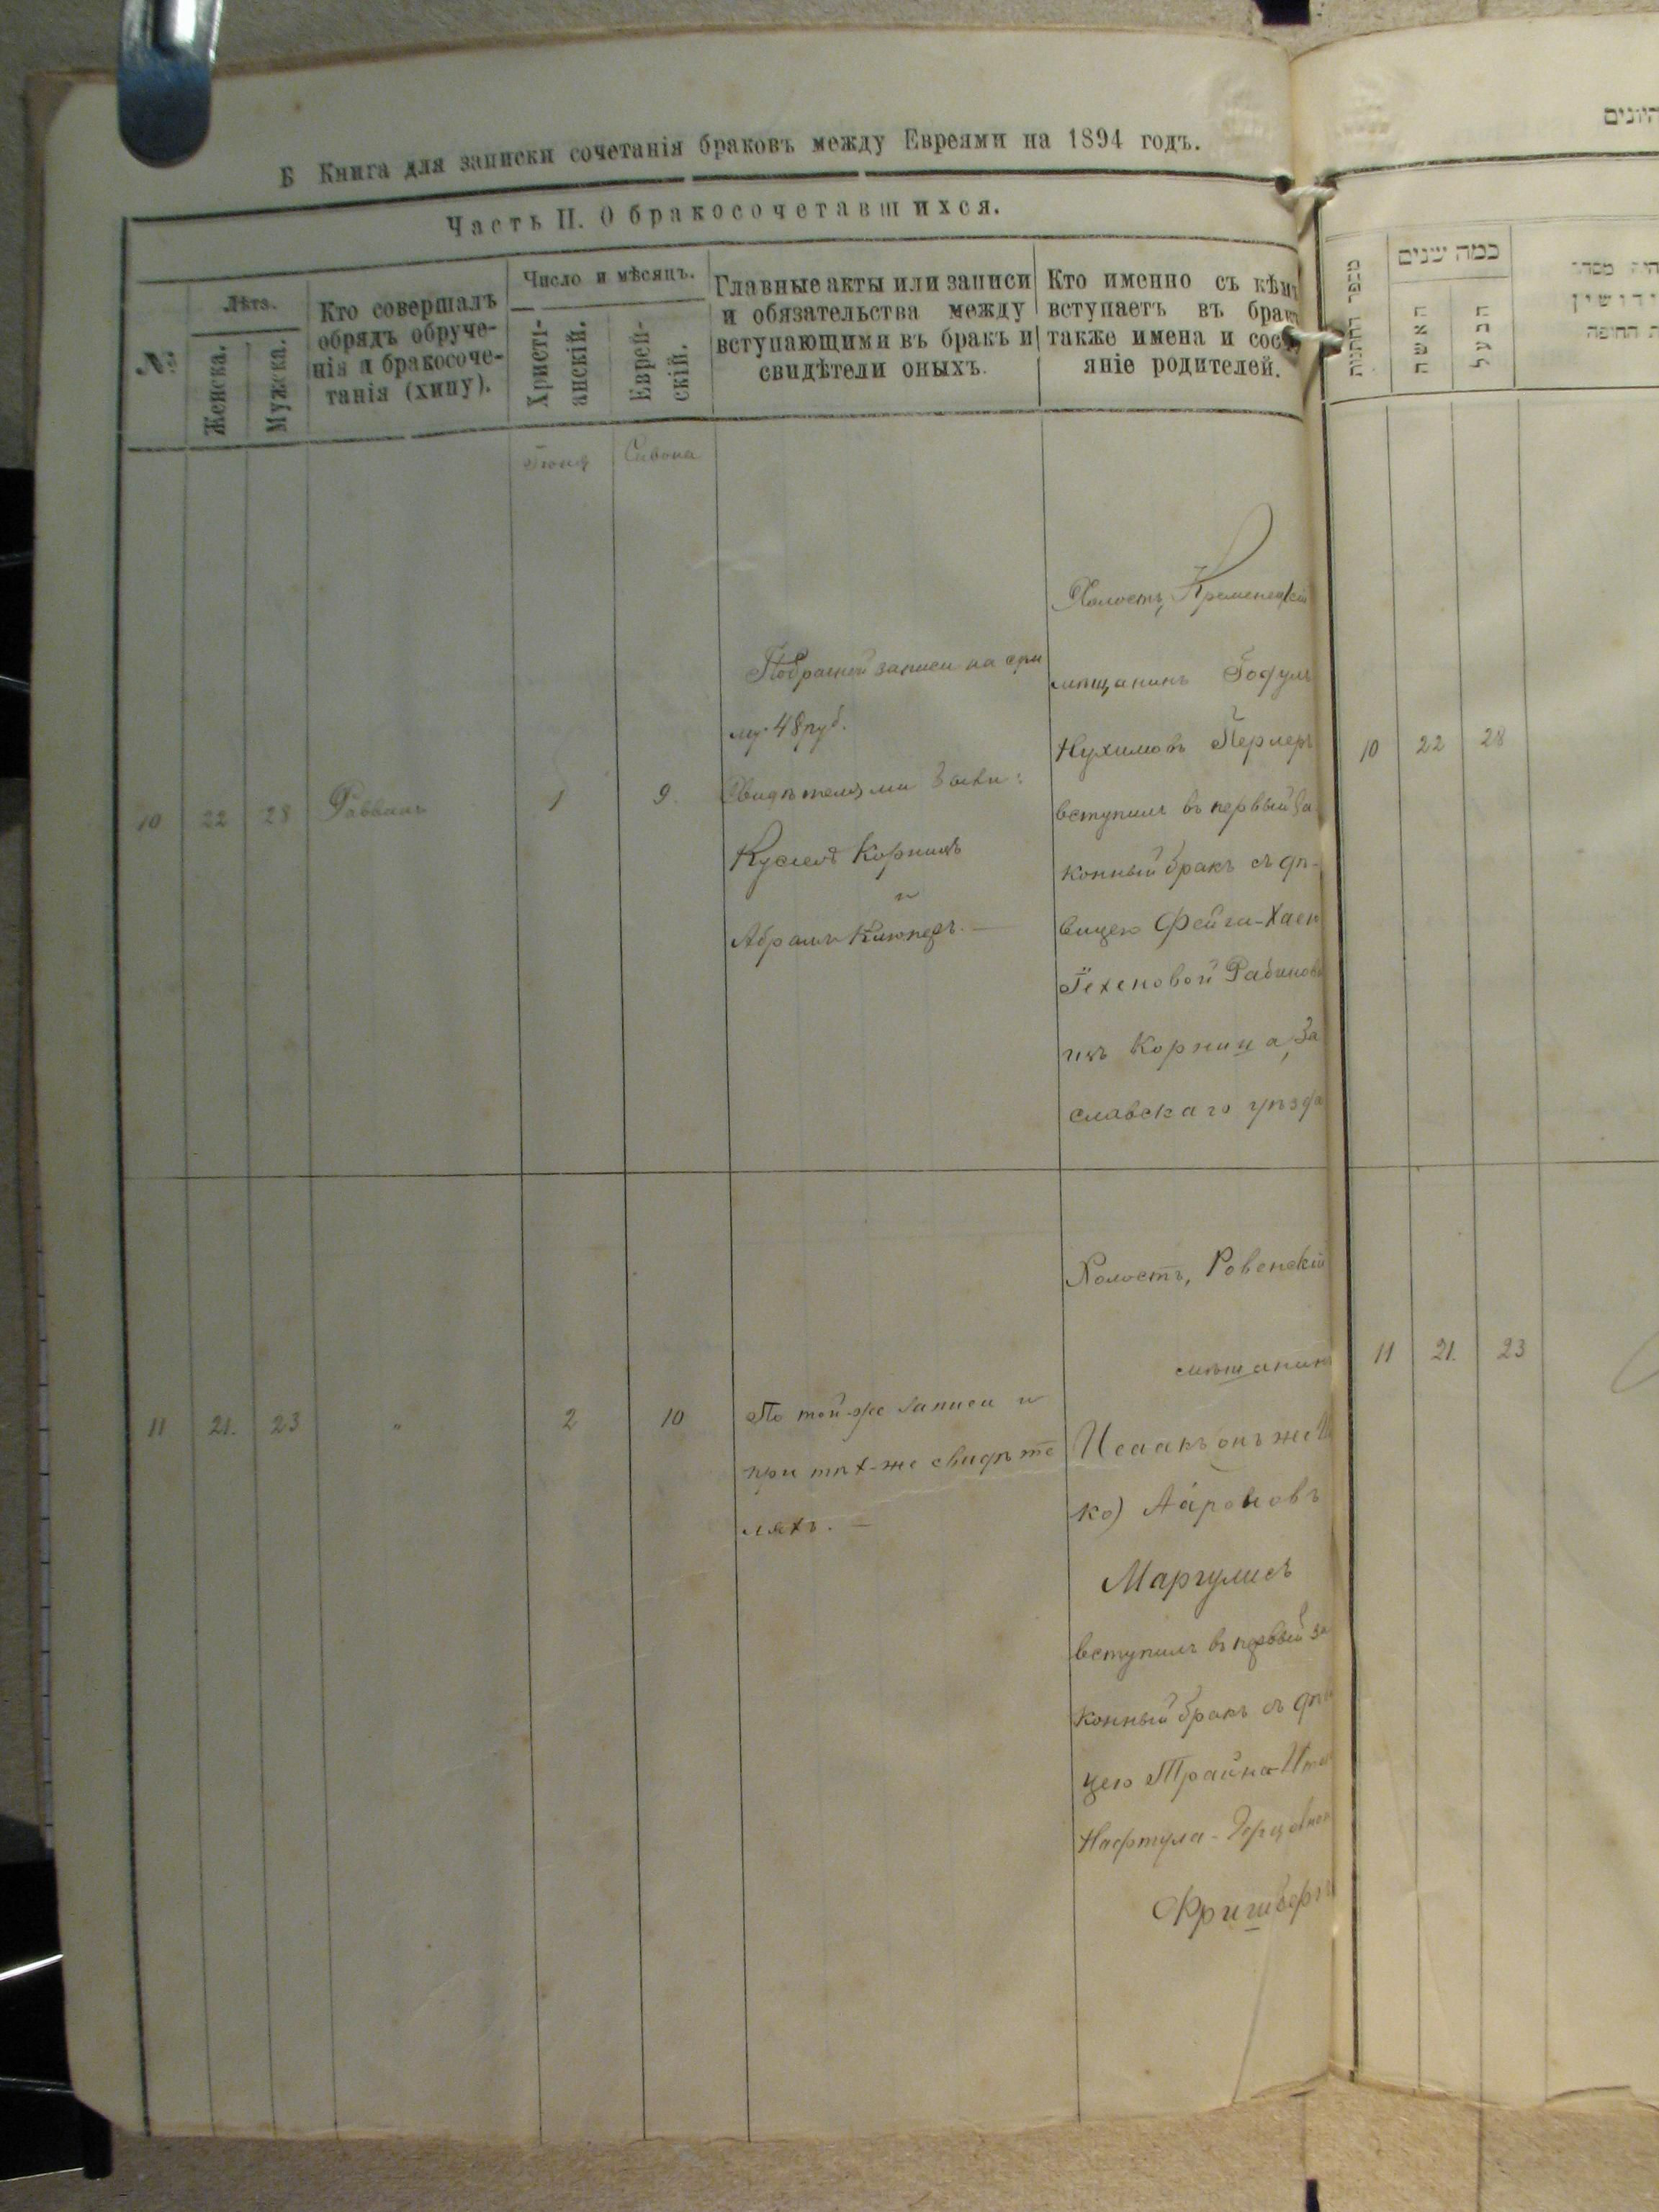 Б Книга для записки сочетанія браковъ между Евреями на 1894 годъ.
Часть II. О бракосочетавшихся.
№
Лѣтъ.
Женска.
Мужска.
Кто совершалъ
обрядъ обруче-
нія и бракосоче-
танія (хипу).
Число и мѣсяцъ.
Христі-
анскій.
Еврей-
скій.
Главные акты или записи
и обязательства между
вступающими въ бракъ и
свидѣтели оныхъ.
Кто именно съ кѣмъ
вступаетъ въ бракъ
также имена и сост
яніе родителей.
Іюня
Сивона
10
22
28
Раввинъ
1
9.
записи на
му 48 руб.
Свидѣтелями были:
Корницъ
и
Абрамъ
Холостъ, Кременецкій
мѣщанинъ
Нухимовъ Перлеръ
вступилъ въ первый за
конный бракъ съ дѣ-
вицею Фейга-Хаею
Іехеновой
изъ Корница, За
славскаго уѣзда
11
21.
23
"
2
10
По той-же записи и
при тѣх-же свидѣте
ляхъ. —
Холостъ, Ровенскій
мѣщанинъ
Исаакъ (онъ же
ко) Аароновъ
Маргулисъ
вступилъ въ первый за
конный бракъ съ дѣви
цею Трайна-
Нафтула-
כמה שנים
האשה
הבעל
10
22
28
11
21.
23